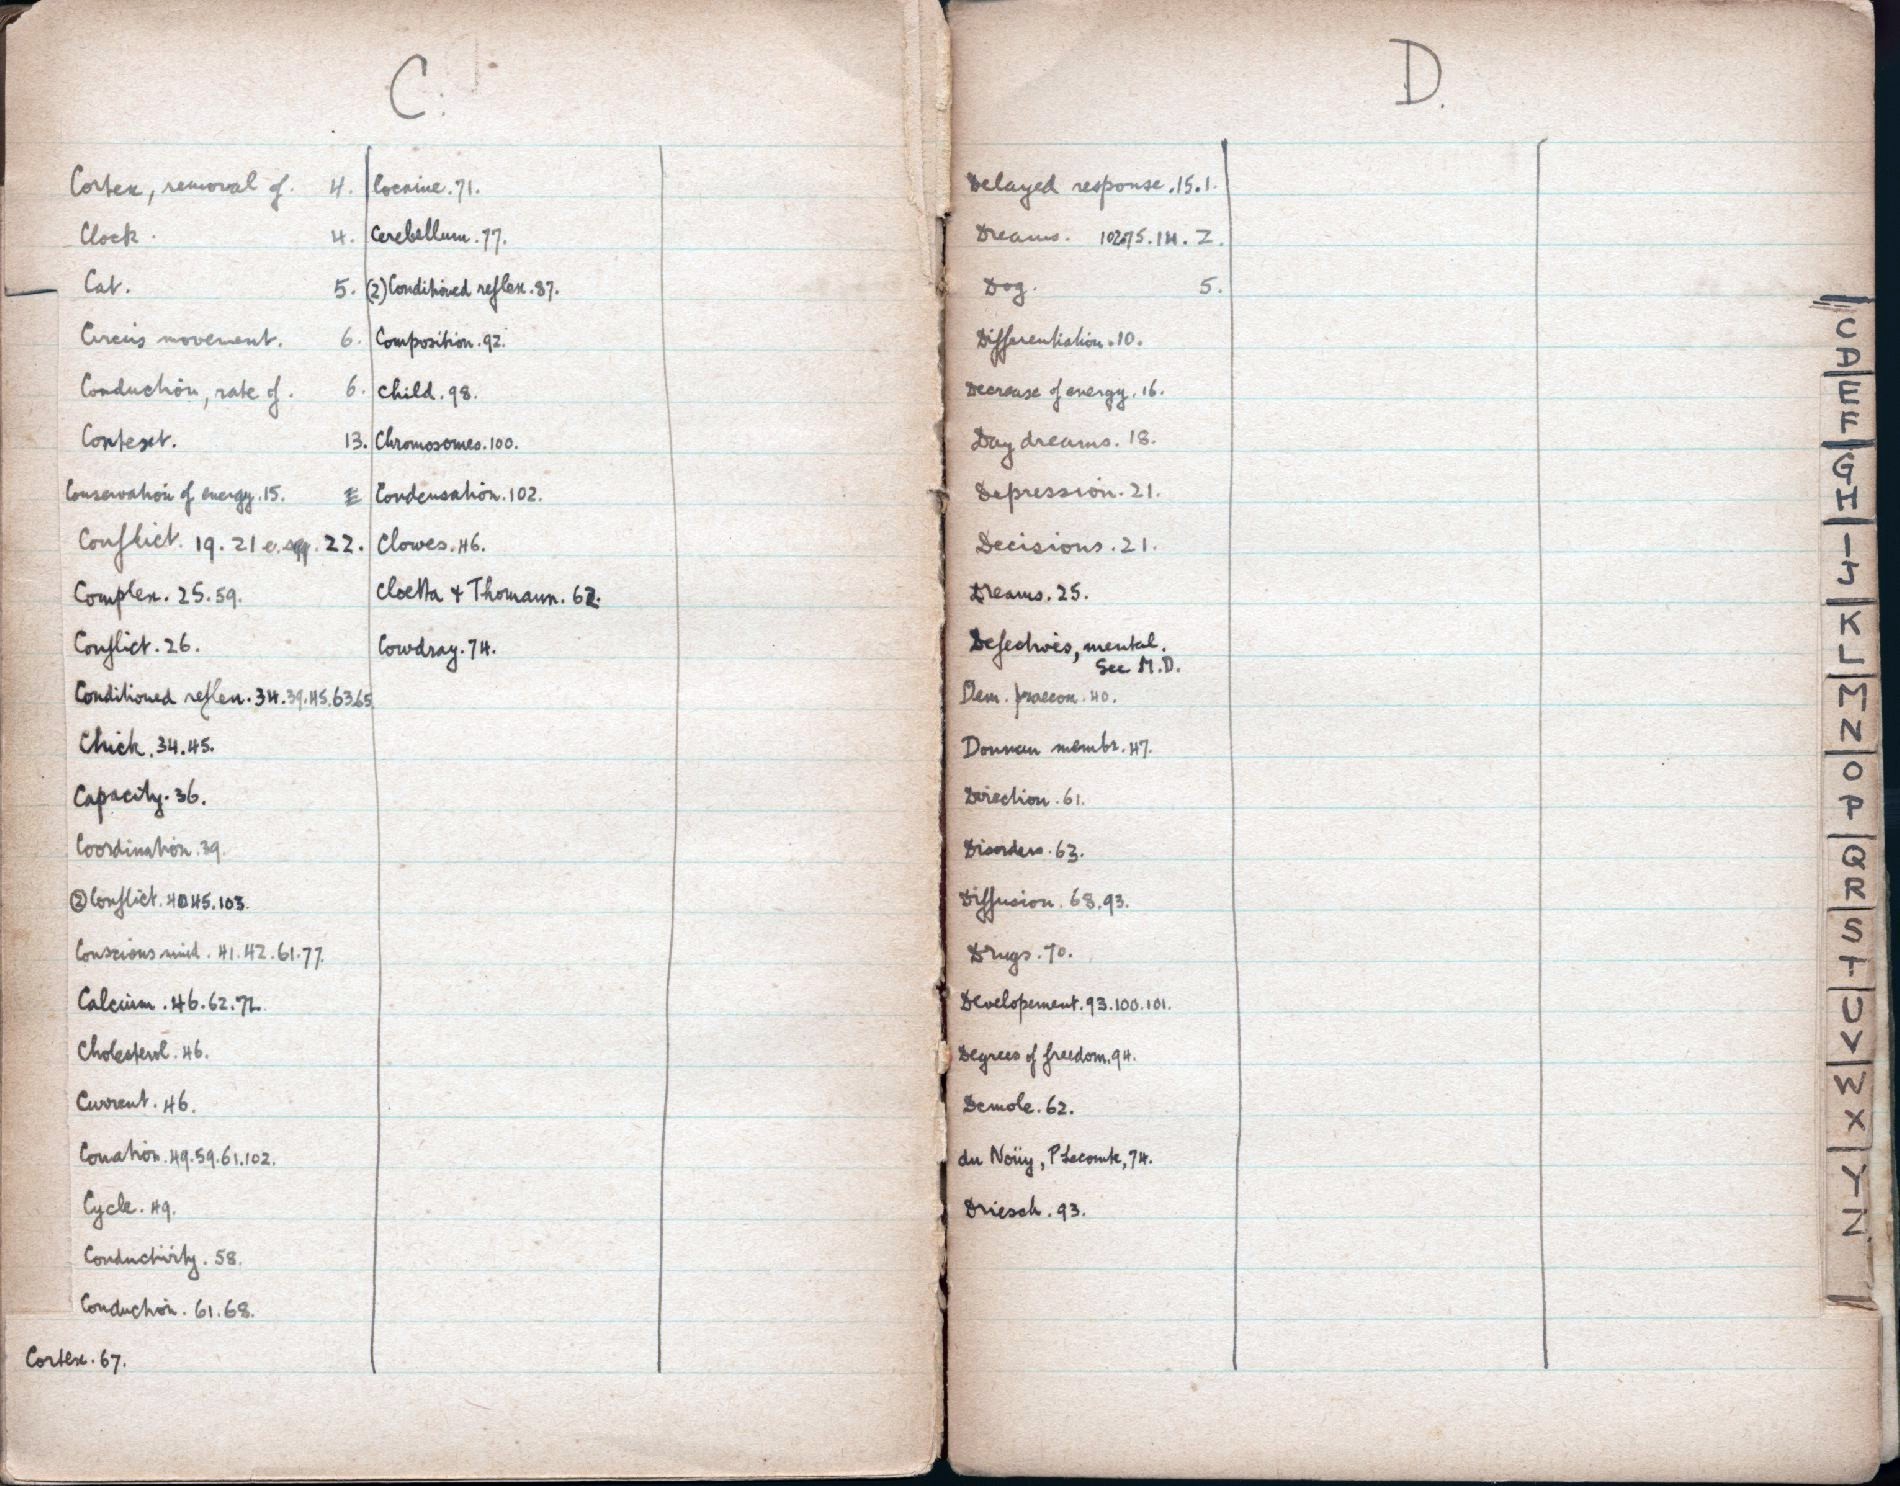 C.
Cortex, removal of. 4.
Clock. 4.
Cat. 5.
Circus movement. 6.
Conduction, rate of. 6.
Context. 13.
Conservation of energy. 15.
Conflict. 19. 21 22.
Complex. 25. 59.
Conflict. 26.
Conditioned reflex. 34. 39. 45. 63 65
Chick. 34. 45.
Capacity. 36.
Coordination. 39.
② Conflict. 40 45. 103.
Conscious mind. 41. 42. 61. 77.
Calcium. 46. 62. 72.
Cholesterol. 46.
Current. 46.
Conation. 49. 59. 61. 102.
Cycle. 49.
Conductivity. 58.
Conduction. 61. 68.
Cortex. 67.
Cocaine. 71.
Cerebellum. 77.
(2) Conditioned reflex. 87.
Composition. 92.
Child. 98.
Chromosomes. 100.
Condensation. 102.
Clowes. 46.
Cloetta & Thomann. 62.
Cowdray. 74.
D.
Delayed response. 15. 1.
Dreams. 14. 2.
Dog. 5.
Differentiation. 10.
Decrease of energy. 16.
Day dreams. 18.
Depression. 21.
Decisions. 21.
Dreams. 25.
Defectives, mental.
See M.D.
Dem. praecox. 40.
Donnan membr. 47.
Direction. 61.
Disorders. 63.
Diffusion. 68. 93.
Drugs. 70.
Developement. 93. 100. 101.
Degrees of freedom. 94.
Demole. 62.
du Noüy, P Lecomte, 74.
Driesch. 93.
E
F
G
H
I
J
K
L
M
N
O
P
Q
R
S
T
U
V
W
X
Y
Z